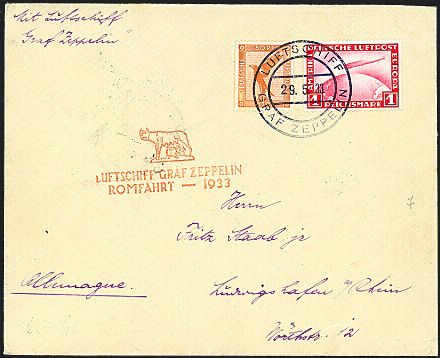 Mit Luftschiff
Graf "Zeppelin"
DEUTSCHE LUFTPOST
EUROPA
1 REICHSMARK 1
LUFTSCHIFF
29. 5.
GRAF ZEPPELIN
LUFTSCHIFF GRAF ZEPPELIN
ROMFAHRT — 1933
Herrn
Fritz Staab jr
Allemagne.
Ludwigshafen a/Rhein
Wörthstr. 12